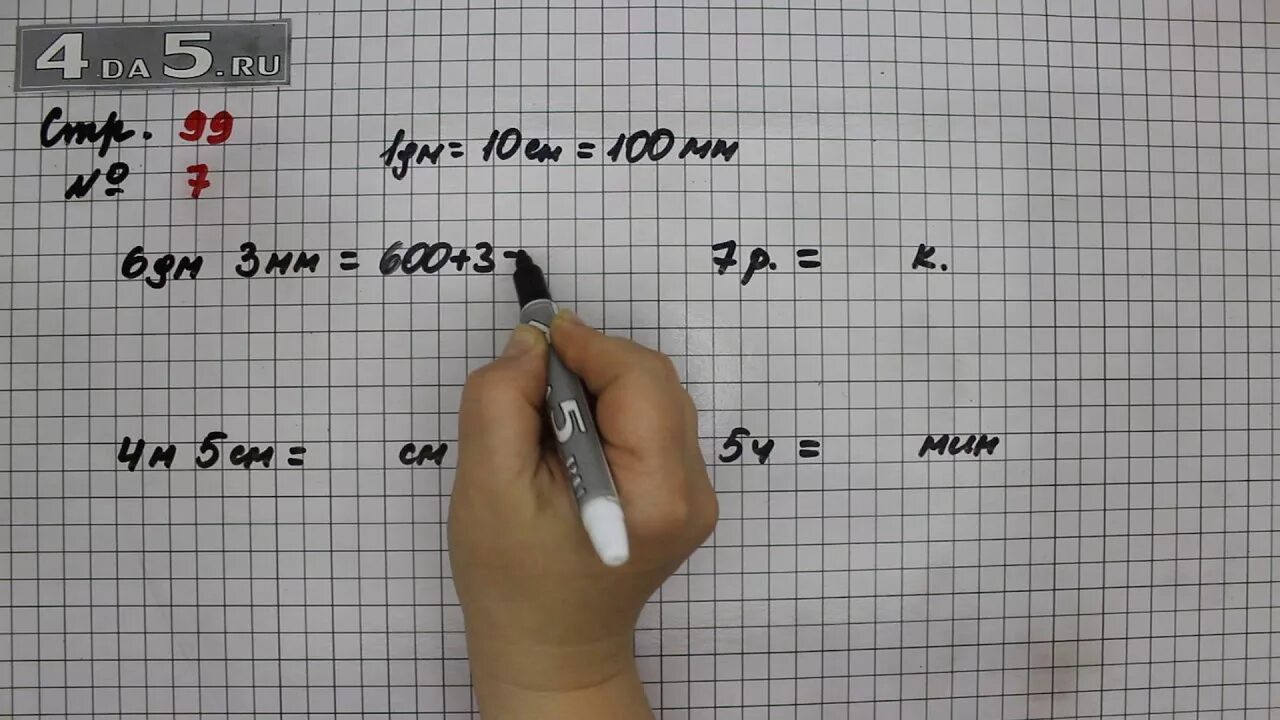 4DA5.RU
Стр. 99
№ 7
1дм = 10см = 100мм
6дм 3мм = 600+3
7р. = к.
4м 5см = см
5ч = мин
5